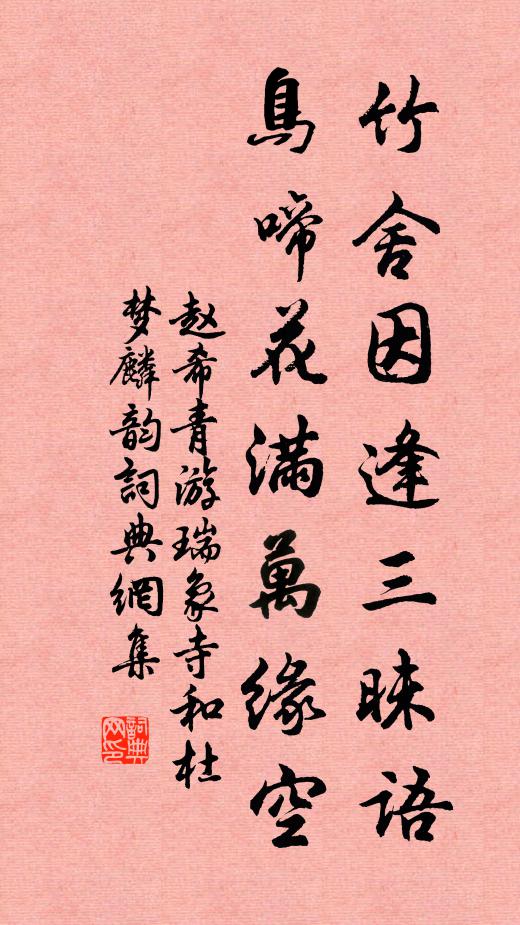 竹舍因逢三昧语
鳥啼花满萬缘空
赵希青游瑞象寺和杜
梦麟韵詞典網集
詞典网印